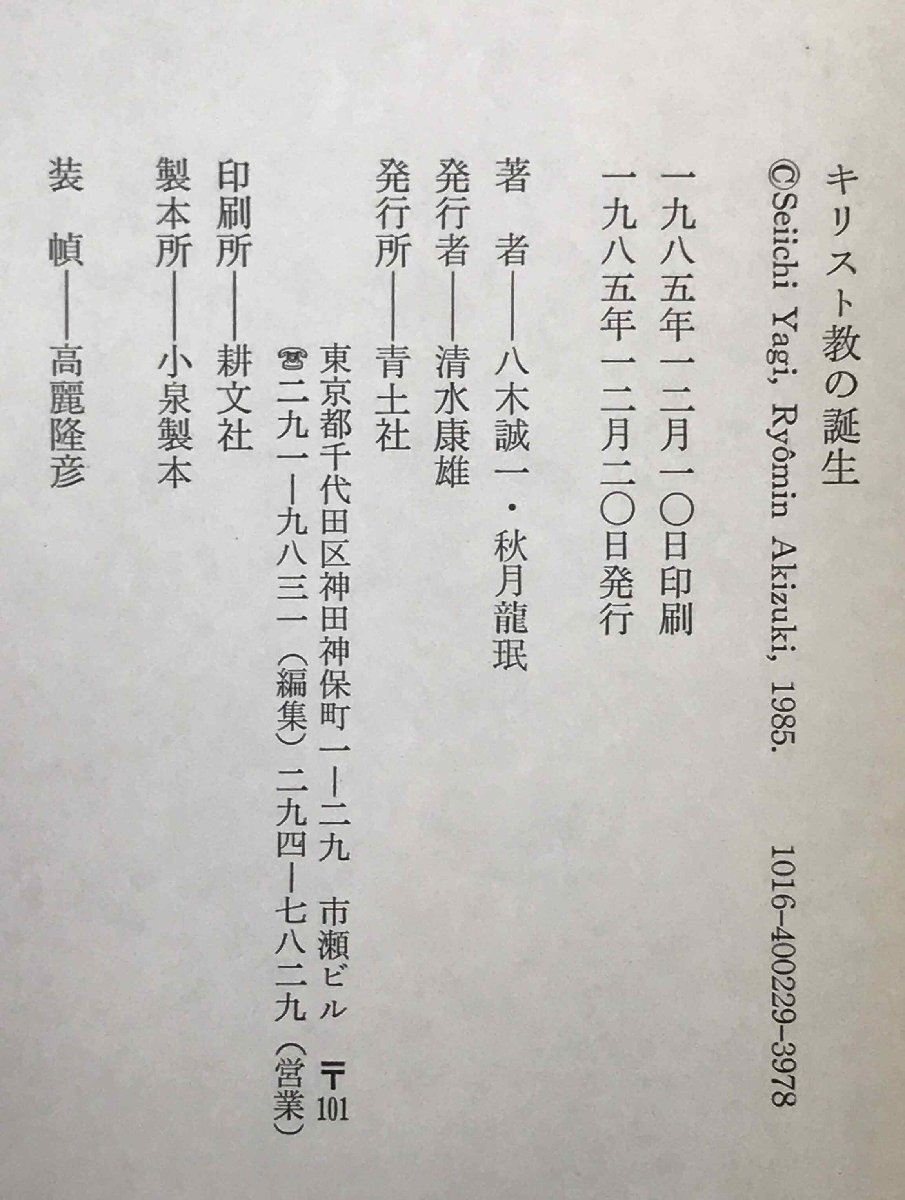 キリスト教の誕生
©Seiichi Yagi, Ryômin Akizuki, 1985.　1016-400229-3978
一九八五年一二月一〇日印刷
一九八五年一二月二〇日発行
著　者――八木誠一・秋月龍珉
発行者――清水康雄
発行所――青土社
東京都千代田区神田神保町一―二九　市瀬ビル　〒101
☎二九一―九八三一（編集）二九四―七八二九（営業）
印刷所――耕文社
製本所――小泉製本
装　幀――高麗隆彦